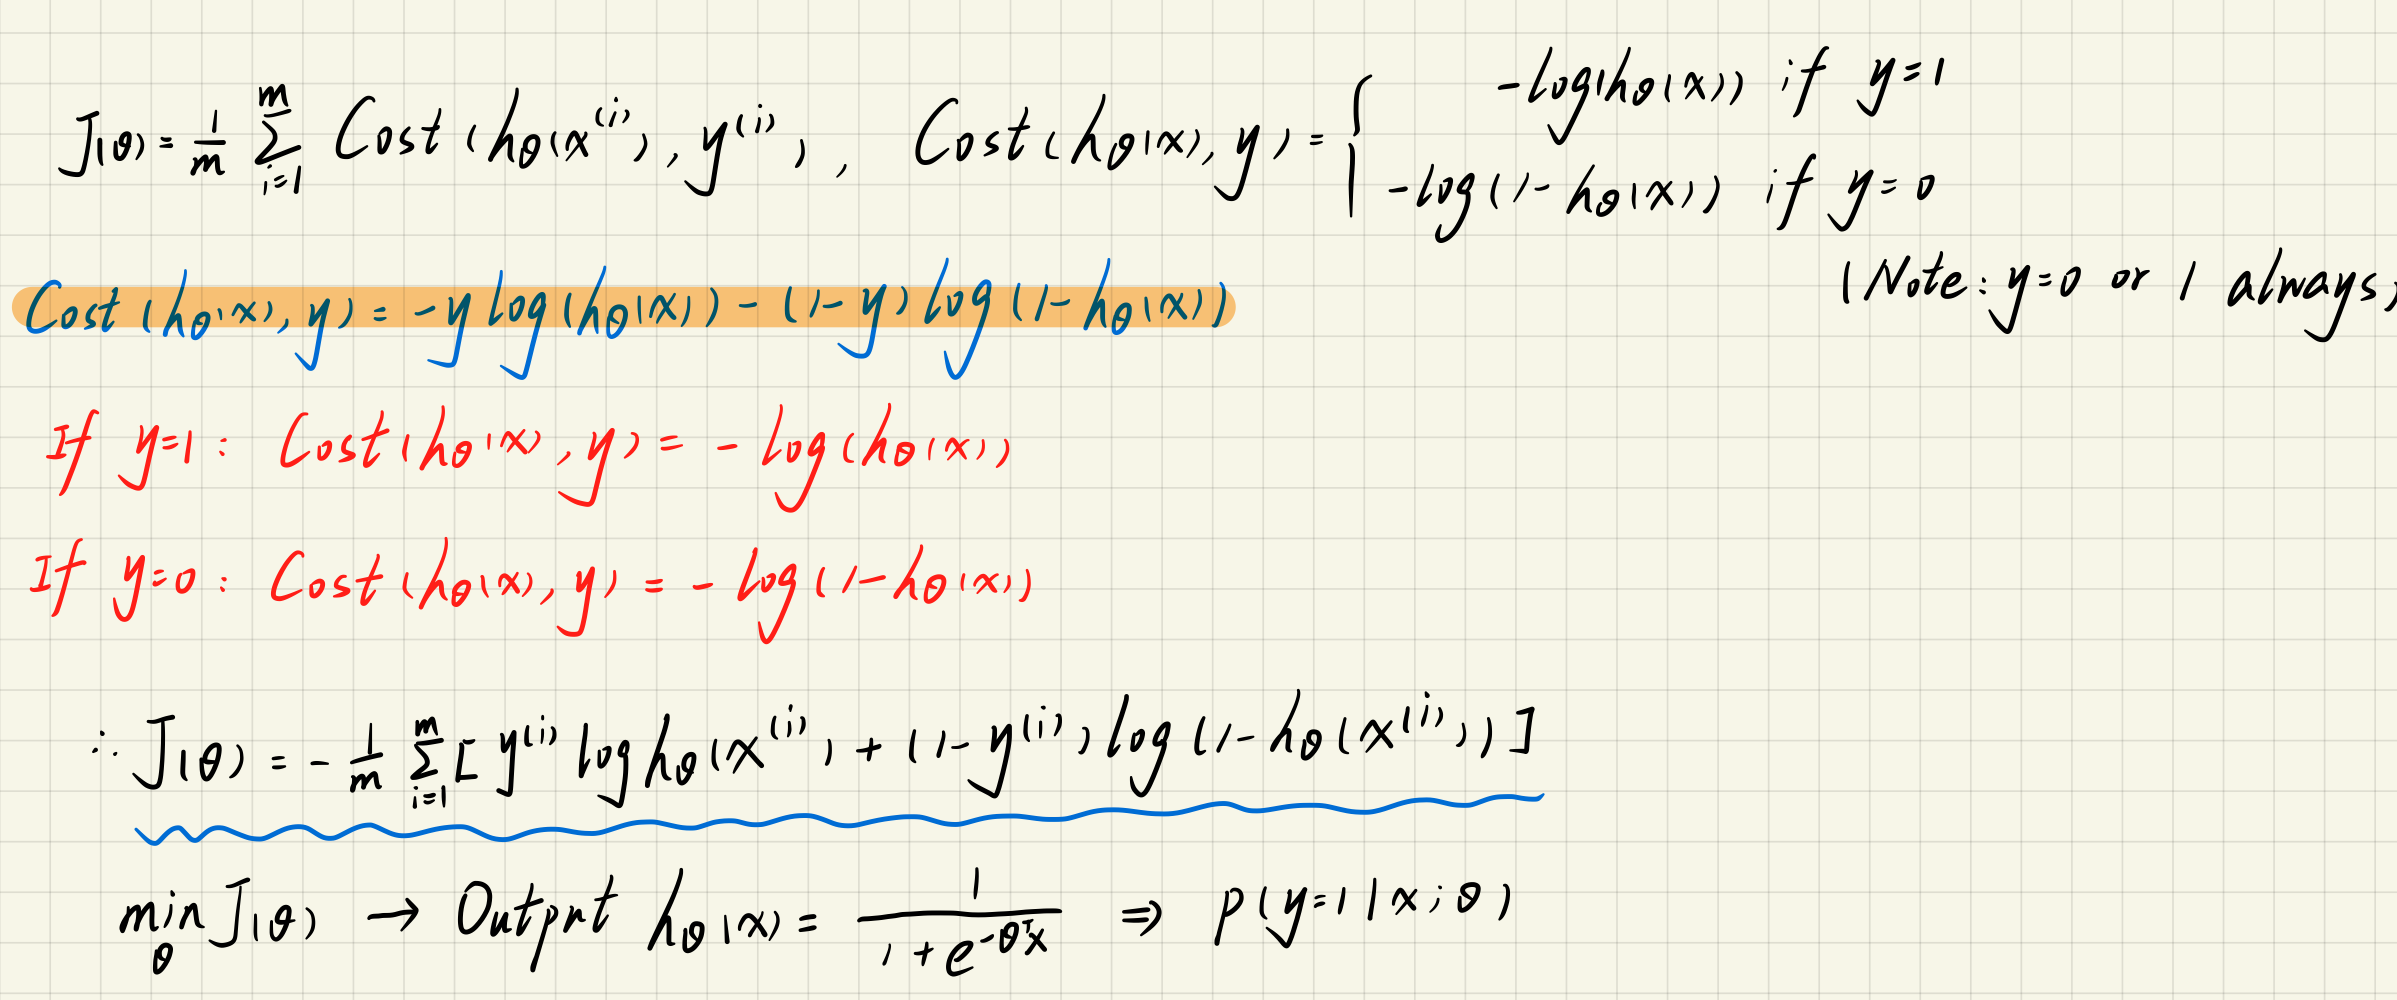 J(θ) = 1/m ∑_{i=1}^{m} Cost(hθ(x⁽ⁱ⁾), y⁽ⁱ⁾), Cost(hθ(x), y) = { -log(hθ(x)) if y=1
-log(1-hθ(x)) if y=0
(Note: y=0 or 1 always)
Cost(hθ(x), y) = -y log(hθ(x)) - (1-y) log(1-hθ(x))
If y=1: Cost(hθ(x), y) = -log(hθ(x))
If y=0: Cost(hθ(x), y) = -log(1-hθ(x))
∴ J(θ) = -1/m ∑_{i=1}^{m} [y⁽ⁱ⁾ log hθ(x⁽ⁱ⁾) + (1-y⁽ⁱ⁾) log(1-hθ(x⁽ⁱ⁾))]
min_θ J(θ) → Output hθ(x) = 1/(1+e^{-θᵀx}) ⇒ p(y=1|x;θ)